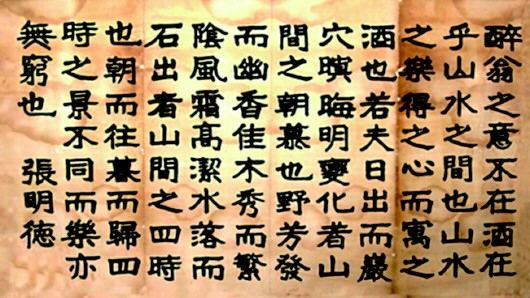 醉翁之意不在酒在
乎山水之間也山水
之樂得之心而寓之
酒也若夫日出而巖
穴暝晦明變化者山
間之朝暮也野芳發
而幽香佳木秀而繁
陰風霜高潔水落而
石出者山間之四時
也朝而往暮而歸四
時之景不同而樂亦
無窮也 張明德